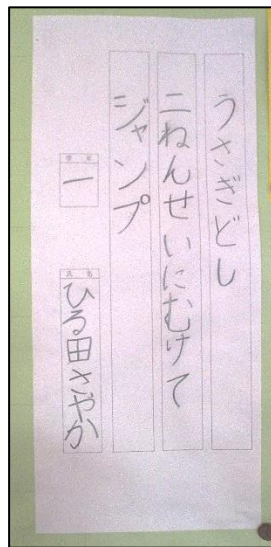 うさぎどし
二ねんせいにむけて
ジャンプ
学年
一
氏名
ひる田さやか